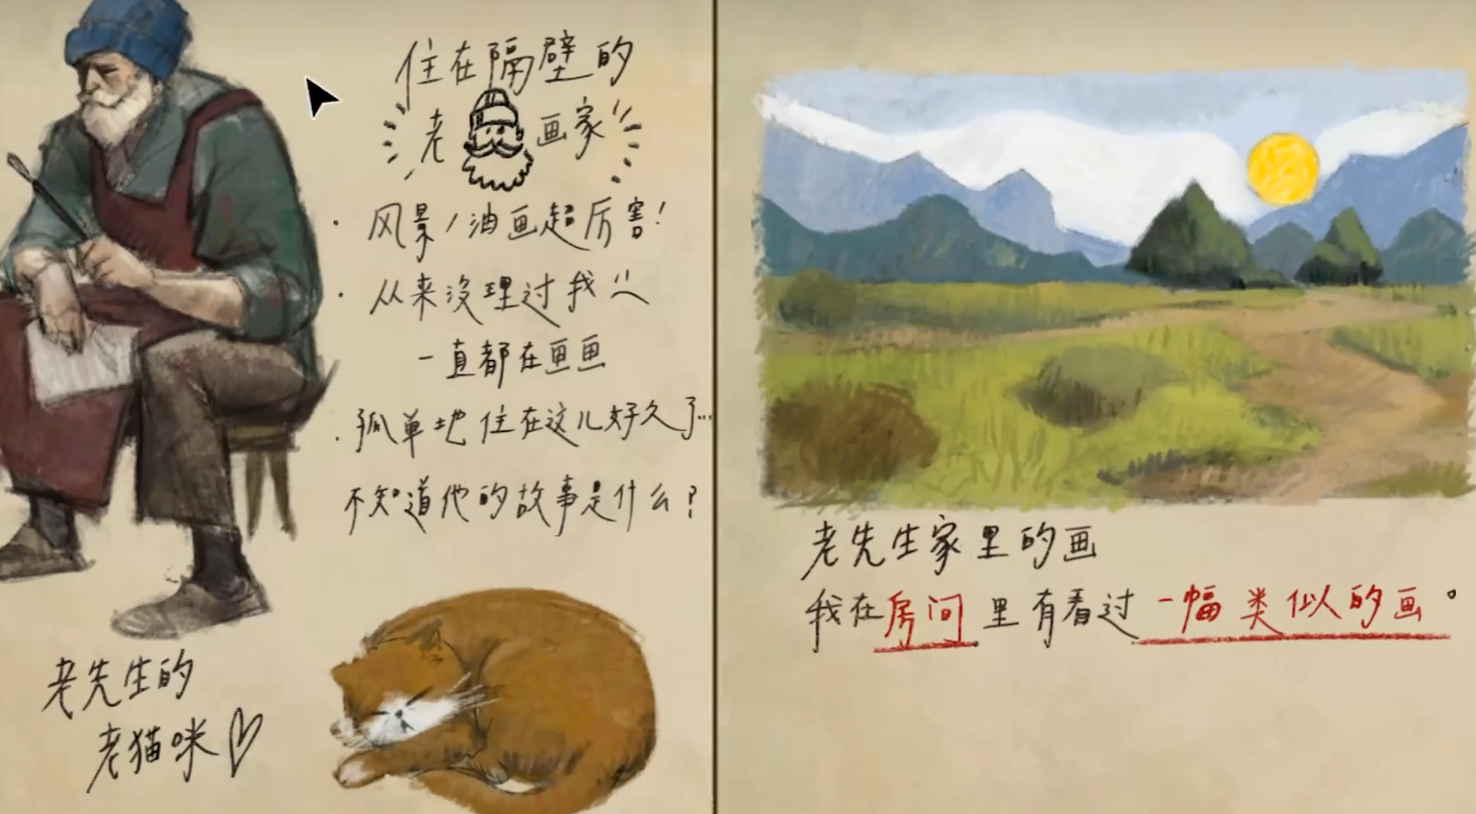 住在隔壁的
老画家
· 风景/油画超厉害!
· 从来没理过我
一直都在画画
· 孤单地住在这儿好久了...
不知道他的故事是什么?
老先生的
老猫咪♡
老先生家里的画
我在房间里有看过一幅类似的画。